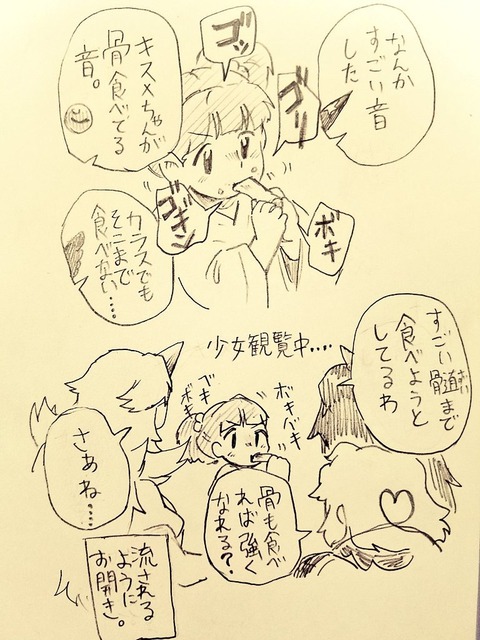 なんか
すごい音
した
ゴッ
ゴリ
キスメちゃんが
骨食べてる
音。
ボキ
ゴキン
カラスでも
そこまで
食べない……
少女観覧中....
すごい髄まで
ずい
食べようと
してるわ
ボキバキ
ブキ
ボキ
骨も食べ
れば強く
なれる?
さあね……
流される
ように
お開き。